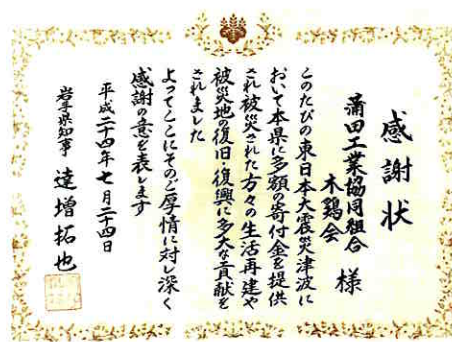 感謝状
蒲田工業協同組合
木鶏会 様
このたびの東日本大震災津波に
おいて本県に多額の寄付金を提供
され被災された方々の生活再建や
被災地の復旧・復興に多大な貢献を
されました
よってここにそのご厚情に対し深く
感謝の意を表します
平成二十四年七月二十四日
岩手県知事 達増拓也